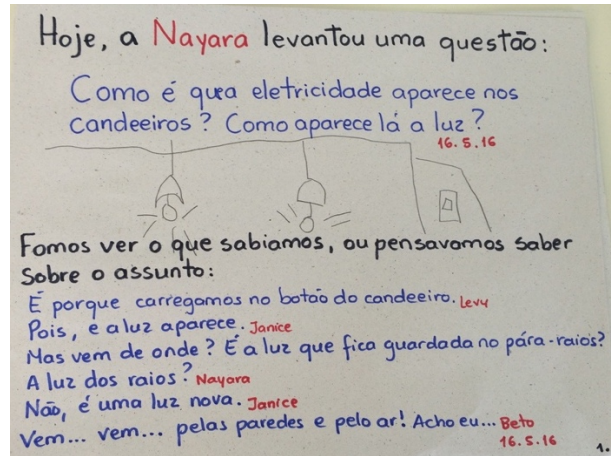 Hoje, a Nayara levantou uma questão:
Como é que a eletricidade aparece nos
candeeiros? Como aparece lá a luz?
16.5.16
Fomos ver o que sabiamos, ou pensavamos saber
Sobre o assunto:
É porque carregamos no botão do candeeiro. Levy
Pois, e a luz aparece. Janice
Mas vem de onde? É a luz que fica guardada no pára-raios?
A luz dos raios? Nayara
Não, é uma luz nova. Janice
Vem... vem... pelas paredes e pelo ar! Acho eu... Beto
16.5.16
1.